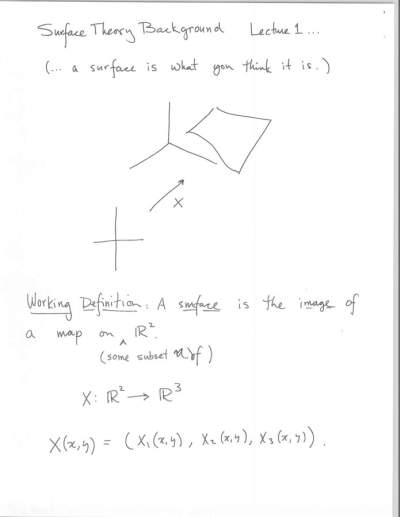 Surface Theory Background Lecture 1...
(... a surface is what you think it is.)
X
Working Definition: A surface is the image of
a map on ‸ ℝ².
(some subset of)
X: ℝ² → ℝ³
X(x,y) = (X₁(x,y), X₂(x,y), X₃(x,y)).